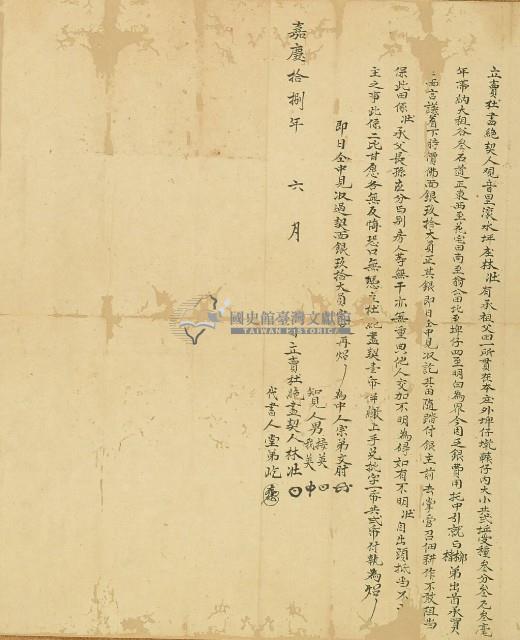 立賣杜盡絕契人觀音里滾水坪庄林壯有承祖父田一所貫在本庄外埤仔墘轆仔內大小共弍坵受種叁分叁厘叁毫
年帶納大租谷叁石道正東西至田南至翁公田北至埤仔四至明白為界今因乏銀費用托中引就與弟出首承買
面言議着下時價佛面銀玖拾大員正其銀即日全中見收訖其田隨踏付銀主前去掌管召佃耕作不敢阻当
保此田係壯承父長孫應分與別房人等無干亦無重典他人交加不明為碍如有不明壯自出頭抵当不干
主之事此係二比甘愿各無反悔恐口無憑立杜絕盡契壹帋併繳上手兌批字一帋共弍帋付執為炤
即日全中見收過契面銀玖拾大員再炤
嘉慶拾捌年 六月 日立賣杜絕盡契人林壯
為中人宗弟文
知見人男接英
義英
代書人堂弟屹
國史館臺灣文獻館
TAIWAN HISTORICA